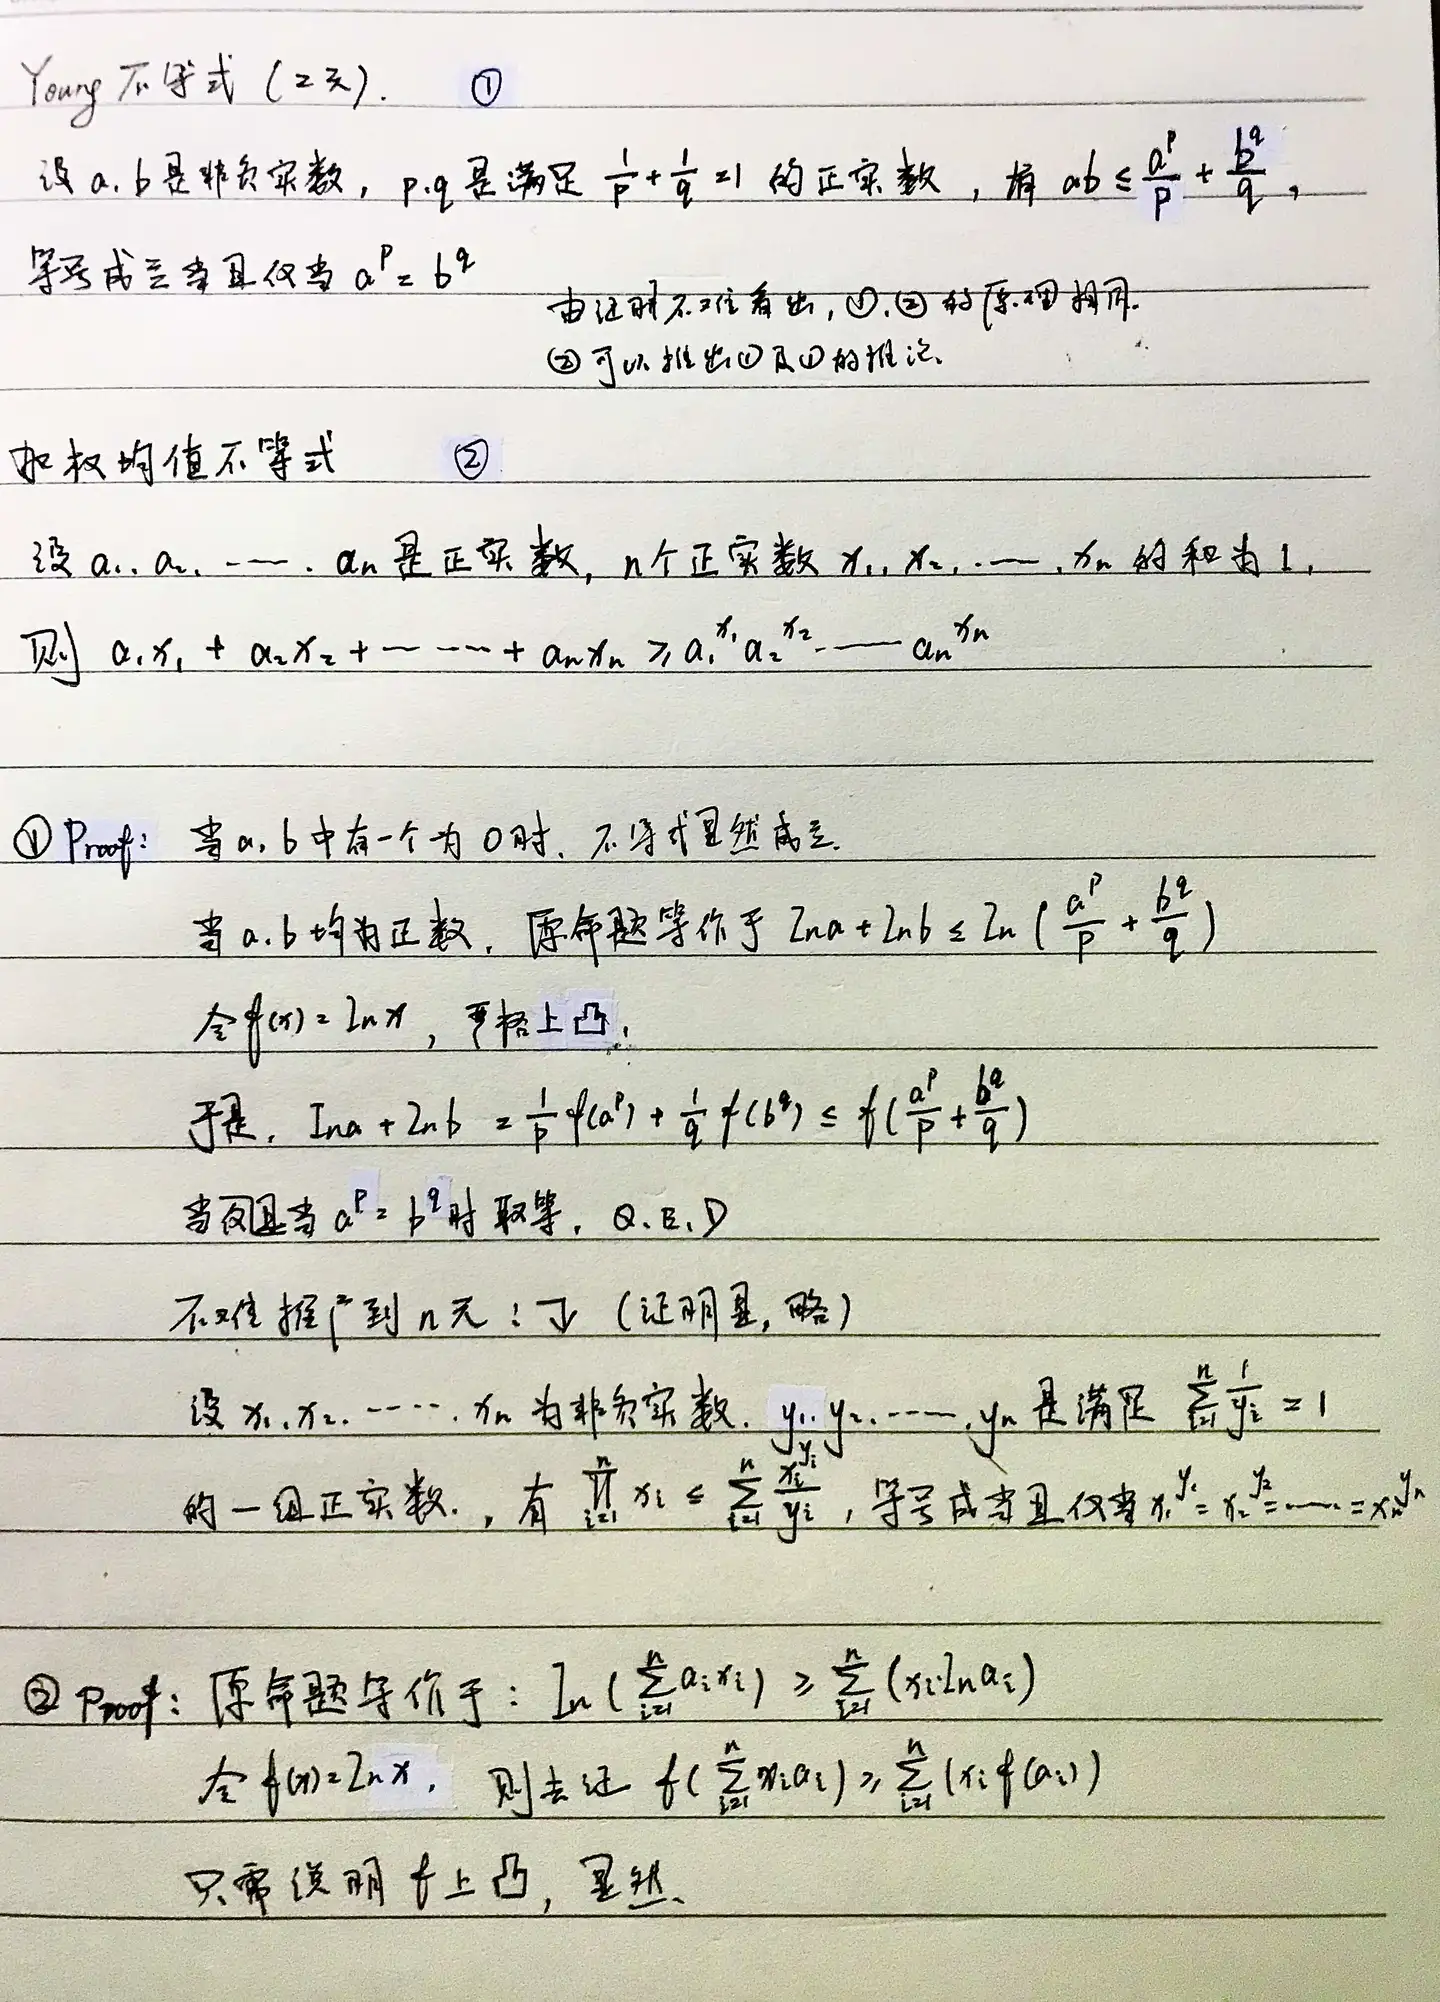 Young 不等式 (二元). ①
设 a, b 是非负实数, p, q 是满足 1/p + 1/q = 1 的正实数, 有 ab ≤ a^p/p + b^q/q,
等号成立当且仅当 a^p = b^q
由证明不难看出, ①, ② 的原理相同.
② 可以推出 ① 及 ① 的推论.
加权均值不等式 ②
设 a₁, a₂, ……, aₙ 是正实数, n个正实数 x₁, x₂, ……, xₙ 的和为 1,
则 a₁x₁ + a₂x₂ + …… + aₙxₙ ≥ a₁^x₁ a₂^x₂ …… aₙ^xₙ
① Proof: 当 a, b 中有一个为 0 时, 不等式显然成立.
当 a, b 均为正数, 原命题等价于 ln a + ln b ≤ ln (a^p/p + b^q/q)
令 f(x) = ln x, 严格上凸.
于是, ln a + ln b = 1/p f(a^p) + 1/q f(b^q) ≤ f(a^p/p + b^q/q)
当仅且当 a^p = b^q 时取等, Q.E.D
不难推广到 n 元: ↓ (证明显, 略)
设 x₁, x₂, ……, xₙ 为非负实数, y₁, y₂, ……, yₙ 是满足 ∑_{i=1}^n 1/y_i = 1
的一组正实数, 有 ∏_{i=1}^n x_i ≤ ∑_{i=1}^n x_i^{y_i}/y_i, 等号成当且仅当 x₁^y₁ = x₂^y₂ = …… = xₙ^yₙ
② Proof: 原命题等价于: ln (∑_{i=1}^n a_i x_i) ≥ ∑_{i=1}^n (x_i ln a_i)
令 f(x) = ln x, 则去证 f(∑_{i=1}^n x_i a_i) ≥ ∑_{i=1}^n (x_i f(a_i))
只需说明 f 上凸, 显然.